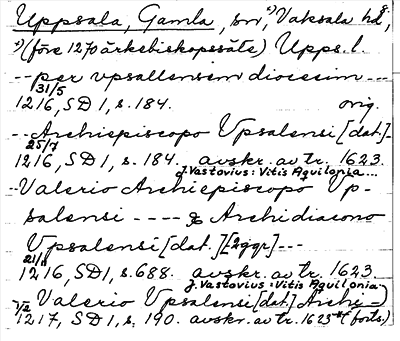 Uppsala, Gamla, sn, 2) Vaksala hd,
1) (före 1270 ärkebiskopssäte) Upps. l.
-- per vpsallensem diocesim ---
31/5
1216, SD 1, s. 184. orig.
-- Archiepiscopo Vpsalensi [dat.]
25/7
1216, SD 1, s. 184. avskr. av tr. 1623.
J. Vastovius: Vitis Aquilonia...
-- Valerio Archiepiscopo Vp-
salensi ---- & Archidiacono
Vpsalensi [dat.] [2ggr] ---
1216, SD 1, s. 688. avskr. av tr. 1623.
J. Vastovius: Vitis Aquilonia
Valerio Vpsalensi [dat.] Archi-)
1217, SD 1, s. 190. avskr. av tr. 1623 *(forts.)